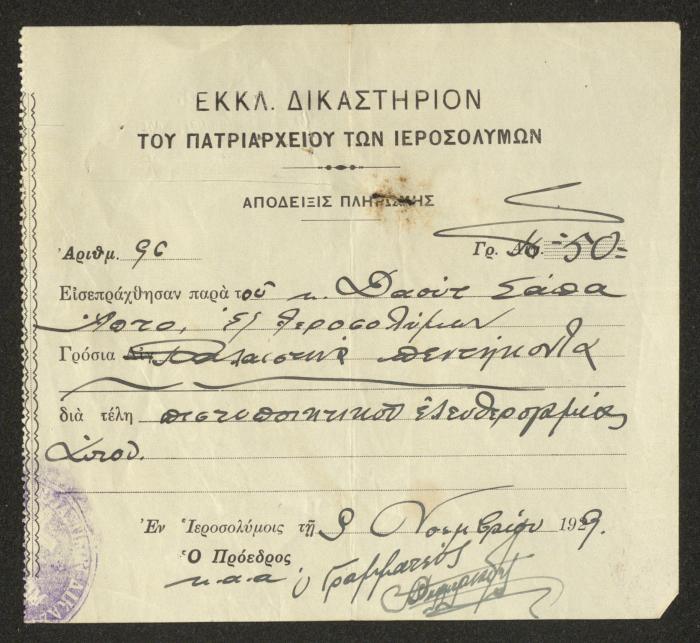 ΕΚΚΛ. ΔΙΚΑΣΤΗΡΙΟΝ
ΤΟΥ ΠΑΤΡΙΑΡΧΕΙΟΥ ΤΩΝ ΙΕΡΟΣΟΛΥΜΩΝ
ΑΠΟΔΕΙΞΙΣ ΠΛΗΡΩΜΗΣ
Ἀριθμ. 96 Γρ. -50-
Εἰσεπράχθησαν παρὰ τοῦ κ. Δαοὺτ Σάπα
ἐξ Ἱεροσολύμων
Γρόσια Παλαιστινὰ πεντήκοντα
διὰ τέλη πιστοποιητικοῦ ἐλευθερογαμίας
Ἐν Ἱεροσολύμοις τῇ 9 Νοεμβρίου 1929.
Ὁ Πρόεδρος
κ.α.α. ὁ Γραμματεὺς